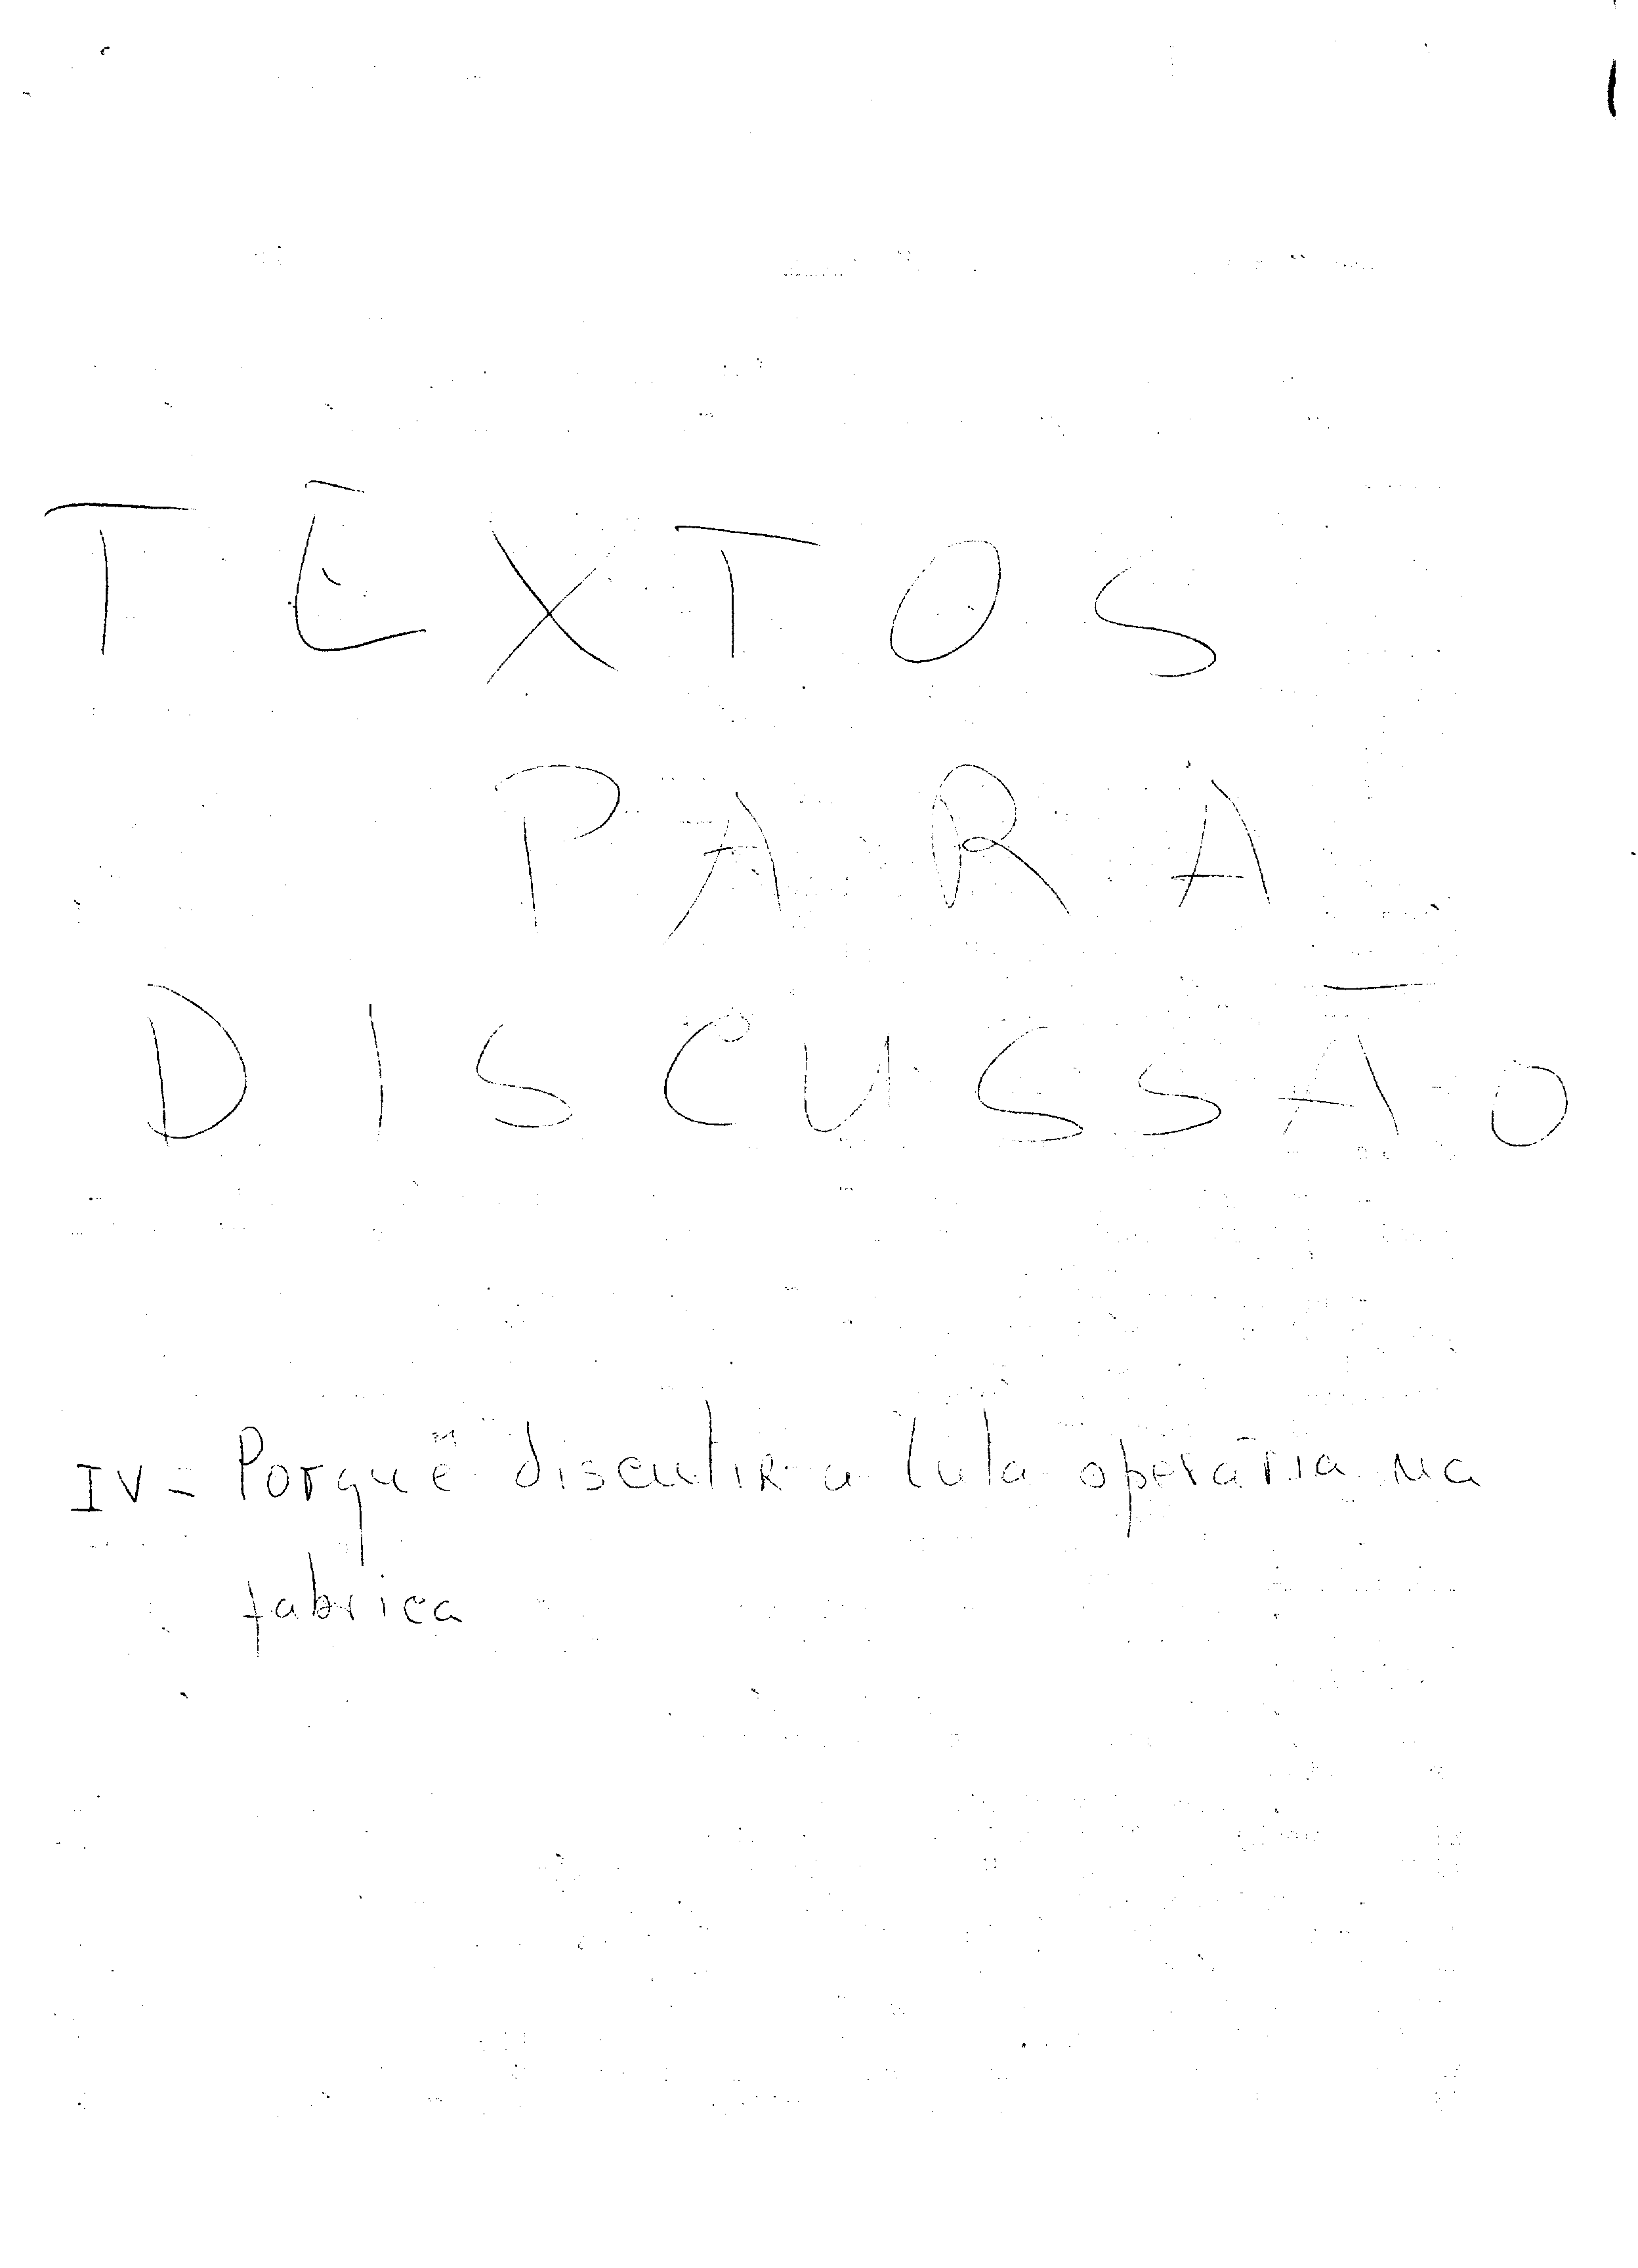 TEXTOS
PARA
DISCUSSÃO
IV - Porquê discutir a luta operária na
fabrica